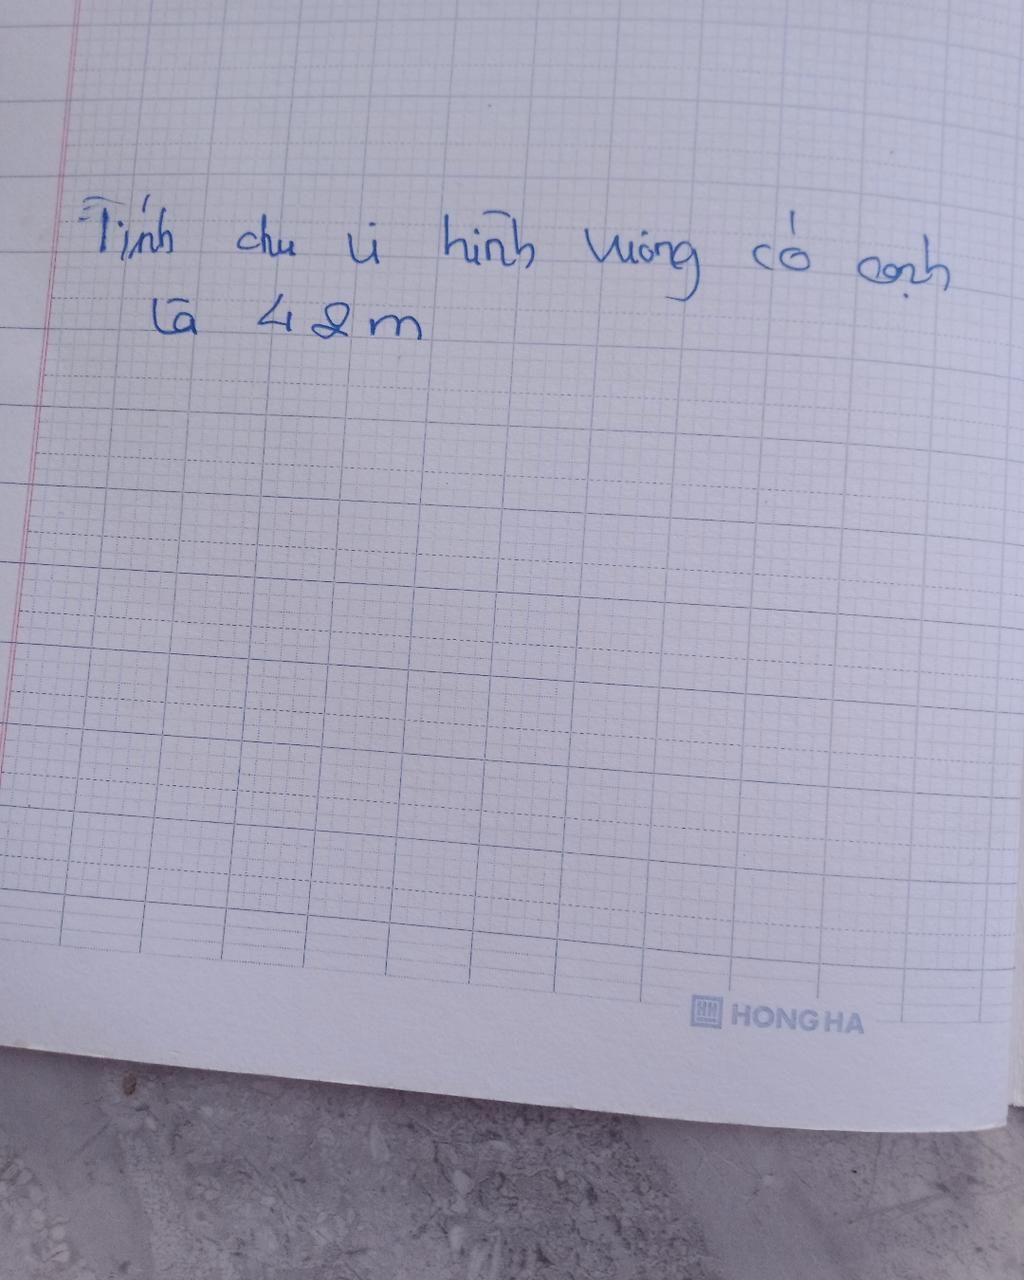 Tính chu vi hình vuông có cạnh
là 42m
HONG HA